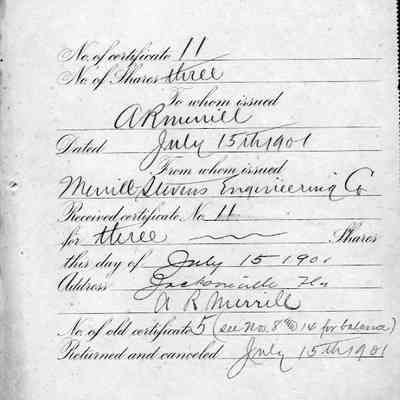 No. of certificate 11
No. of Shares three
To whom issued
A R Merrill
Dated July 15th 1901
From whom issued
Merrill-Stevens Engineering Co
Received certificate No. 11
for three Shares
this day of July 15 1901
Address Jacksonville Fla
A R Merrill
No. of old certificate 5 (see No. 8 & 14 for balance)
Returned and canceled July 15th 1901